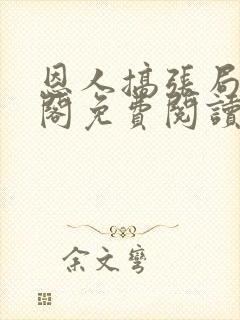 恩人搞張局
閣免費閱讀
余文彎